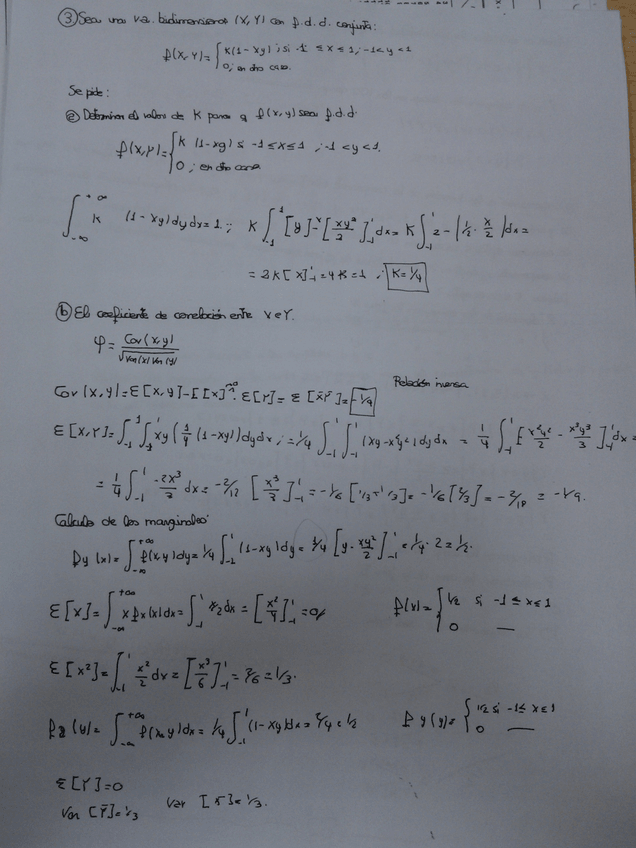 ③ Sea una v.a. bidimensional (X,Y) con f.d.d. conjunta:
f(X,Y)= { K(1-xy) ; si -1 ≤ x ≤ 1 ; -1 < y < 1
0; en otro caso.
Se pide:
ⓐ Determinar el valor de K para q f(x,y) sea f.d.d.
f(x,y)= { K (1-xy) si -1≤x≤1 ; -1 < y < 1.
0 ; en otro caso
∫_{-∞}^{+∞} K (1-xy) dy dx = 1 ; K ∫_{-1}^{1} [y] - [xy²/2]_{-1}^{1} dx = K ∫_{-1}^{1} 2 - |1/2 · x/2| dx =
= 2K [x]_{-1}^{1} = 4K = 1 ; K=1/4
ⓑ El coeficiente de correlación entre X e Y.
φ = Cov(x,y) / √Var(x) Var(y)
Cov(X,y) = E[X,y] - E[X] · E[Y] = E[XY] = -1/9 Relación inversa
E[X,Y] = ∫_{-1}^{1} ∫_{-1}^{1} xy (1/4 (1-xy)) dy dx ; = 1/4 ∫_{-1}^{1} ∫_{-1}^{1} (xy - x²y²) dy dx = 1/4 ∫_{-1}^{1} [x²y²/2 - x³y³/3]_{-1}^{1} dx =
= 1/4 ∫_{-1}^{1} -2x³/3 dx = -2/12 [x³/3]_{-1}^{1} = -1/6 [1/3 + 1/3] = -1/6 [2/3] = -2/18 = -1/9.
Calculo de las marginales:
fy (x) = ∫_{-∞}^{+∞} f(x,y) dy = 1/4 ∫_{-1}^{1} (1-xy) dy = 1/4 [y - xy²/2]_{-1}^{1} = 1/4 · 2 = 1/2.
E[X] = ∫_{-∞}^{+∞} x fx(x) dx = ∫_{-1}^{1} x/2 dx = [x²/4]_{-1}^{1} = 0 f(x) = { 1/2 si -1 ≤ x ≤ 1
0 —
E[X²] = ∫_{-1}^{1} x²/2 dx = [x³/6]_{-1}^{1} = 2/6 = 1/3.
fy (y) = ∫_{-∞}^{+∞} f(x,y) dx = 1/4 ∫_{-1}^{1} (1-xy) dx = 2/4 = 1/2 f y (y) = { 1/2 si -1≤ x ≤1
0 —
E[Y] = 0
Var [Y] = 1/3 Var [X] = 1/3.